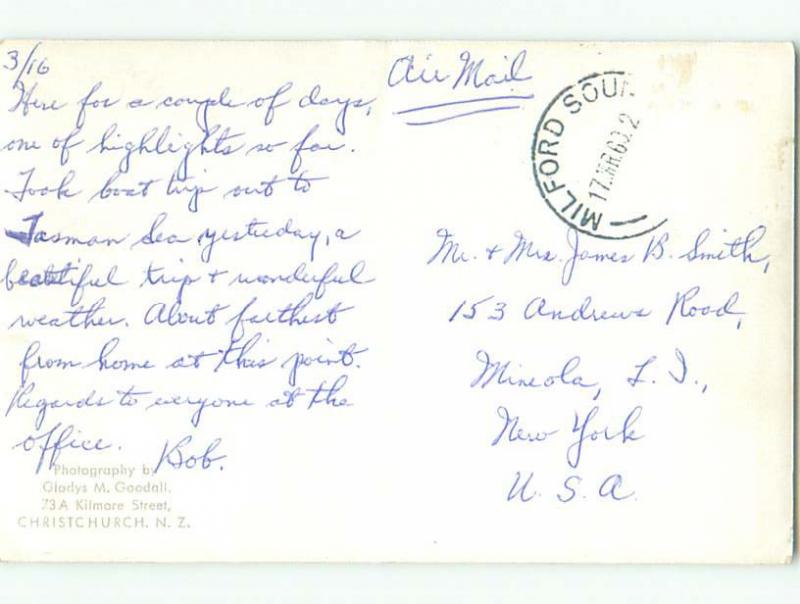 3/16
Here for a couple of days,
one of highlights so far.
Took boat trip out to
Tasman Sea yesterday, a
beautiful trip + wonderful
weather. About farthest
from home at this point.
Regards to everyone at the
office. Bob.
Photography by
Gladys M. Goodall,
73A Kilmore Street,
CHRISTCHURCH. N. Z.
Air Mail
MILFORD SOUN
Mr. + Mrs. James B. Smith,
153 Andrews Road,
Mineola, L. I.,
New York
U. S. A.